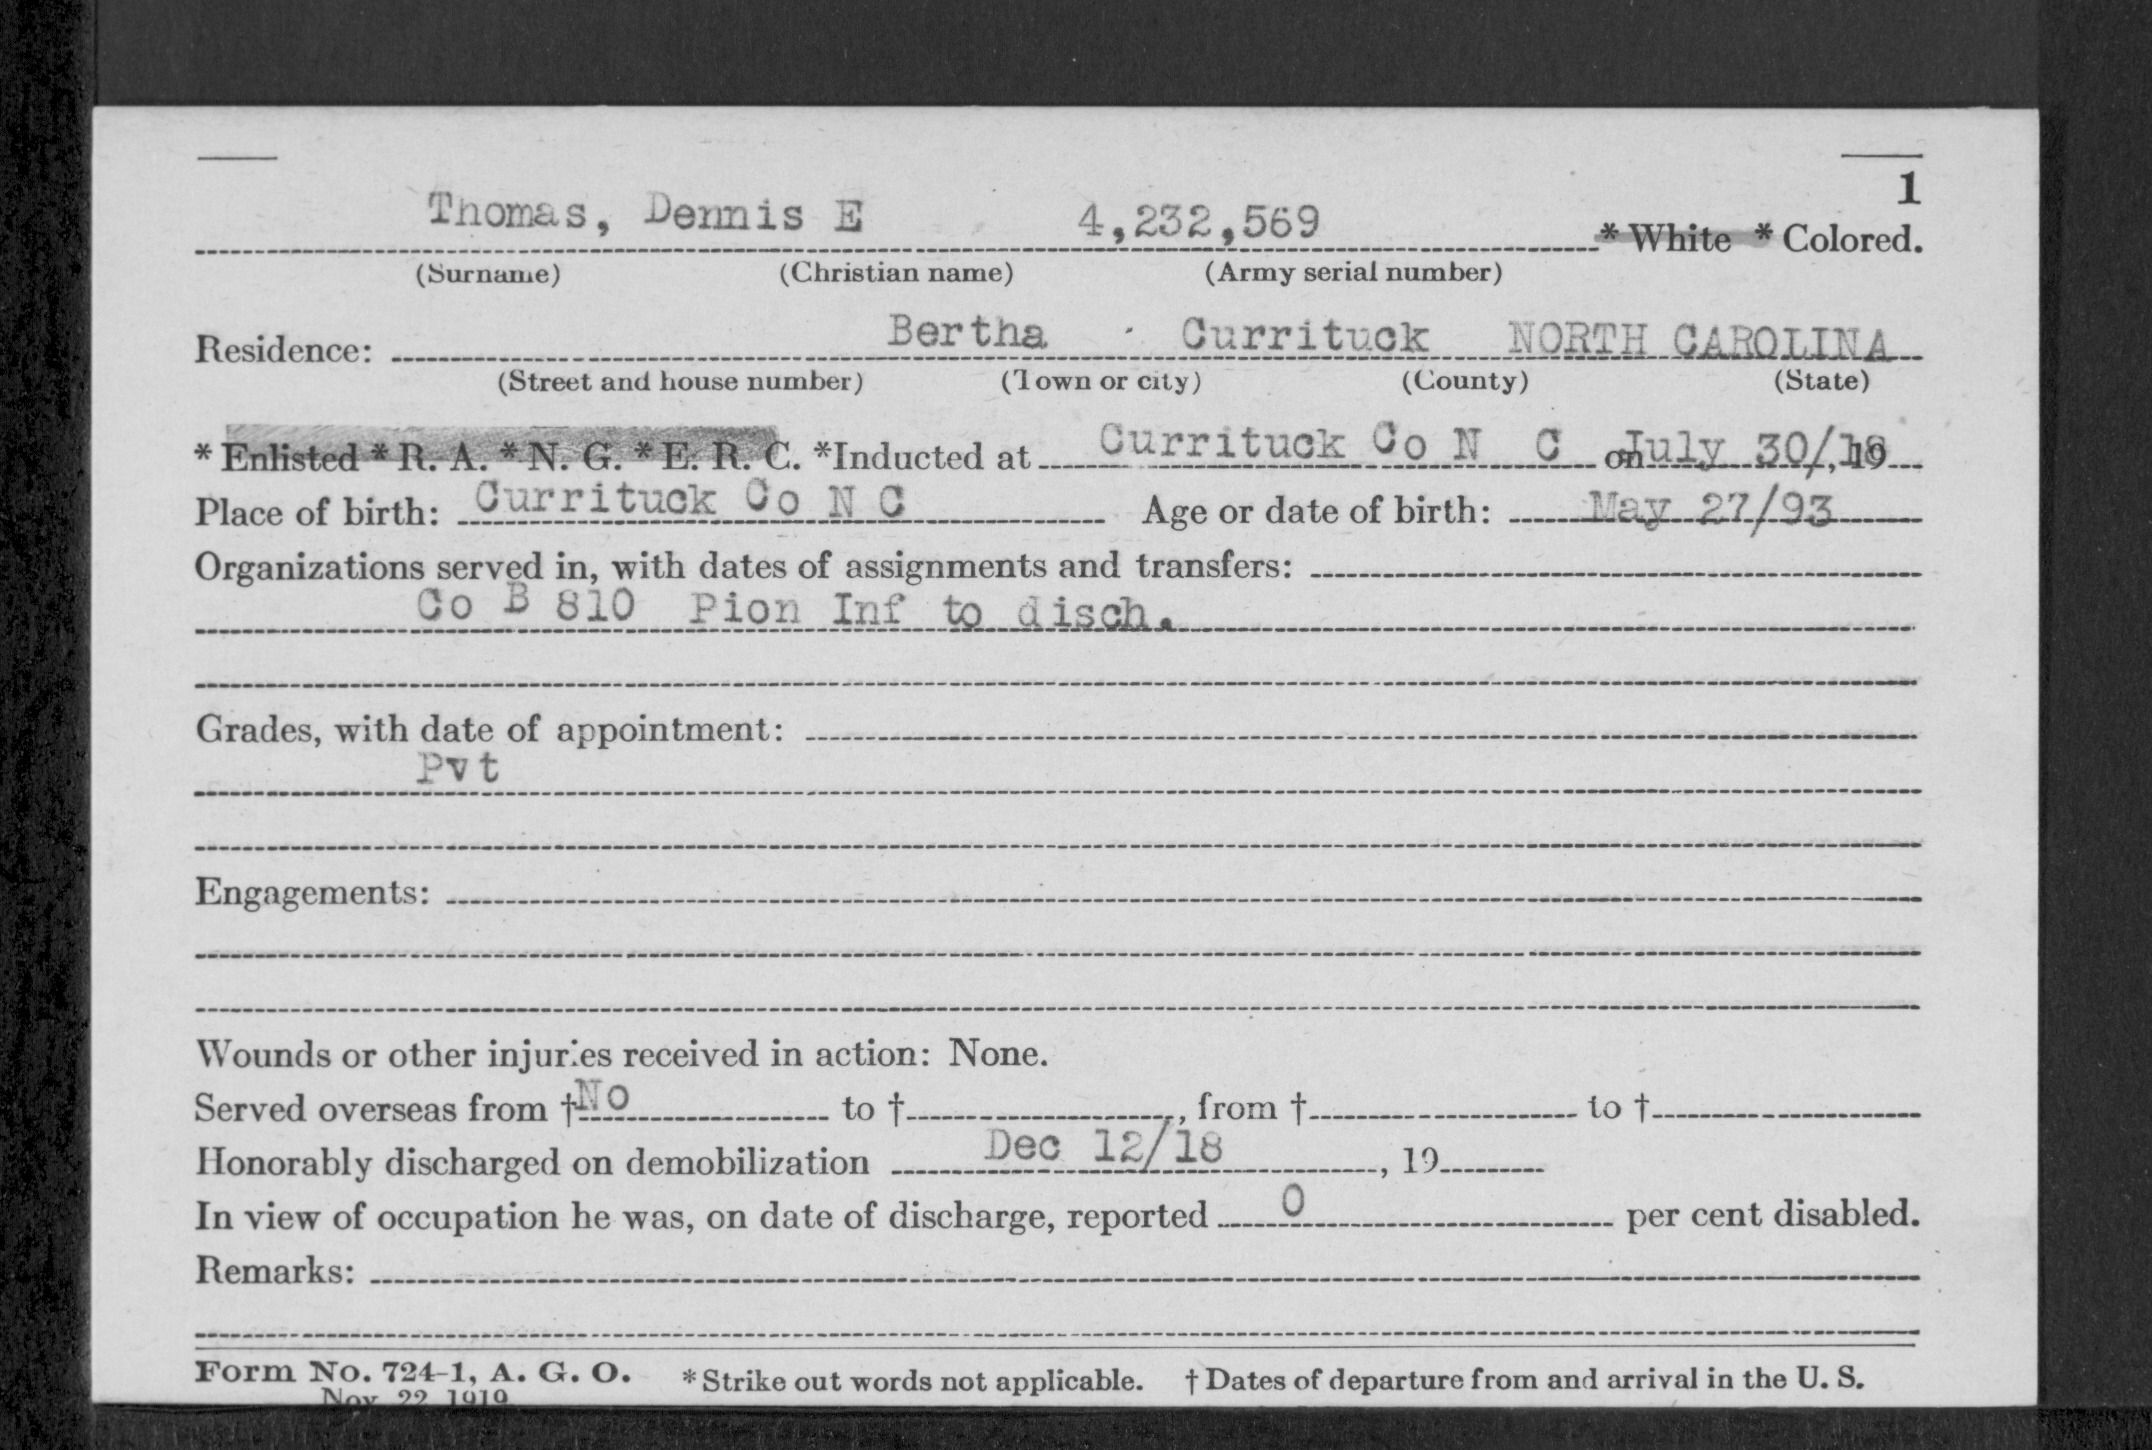 1
Thomas, Dennis E 4,232,569 * White * Colored.
(Surname) (Christian name) (Army serial number)
Residence: Bertha Currituck NORTH CAROLINA
(Street and house number) (Town or city) (County) (State)
* Enlisted * R. A. * N. G. * E. R. C. *Inducted at Currituck Co N C on July 30/18, 19
Place of birth: Currituck Co N C Age or date of birth: May 27/93
Organizations served in, with dates of assignments and transfers:
Co B 810 Pion Inf to disch.
Grades, with date of appointment:
Pvt
Engagements:
Wounds or other injuries received in action: None.
Served overseas from †No to †, from † to †
Honorably discharged on demobilization Dec 12/18, 19
In view of occupation he was, on date of discharge, reported 0 per cent disabled.
Remarks:
Form No. 724-1, A. G. O. * Strike out words not applicable. † Dates of departure from and arrival in the U. S.
Nov. 22, 1919